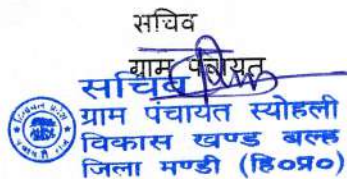 सचिव
ग्राम पंचायत
सचिव
ग्राम पंचायत स्योहली
विकास खण्ड बल्ह
जिला मण्डी (हि०प्र०)